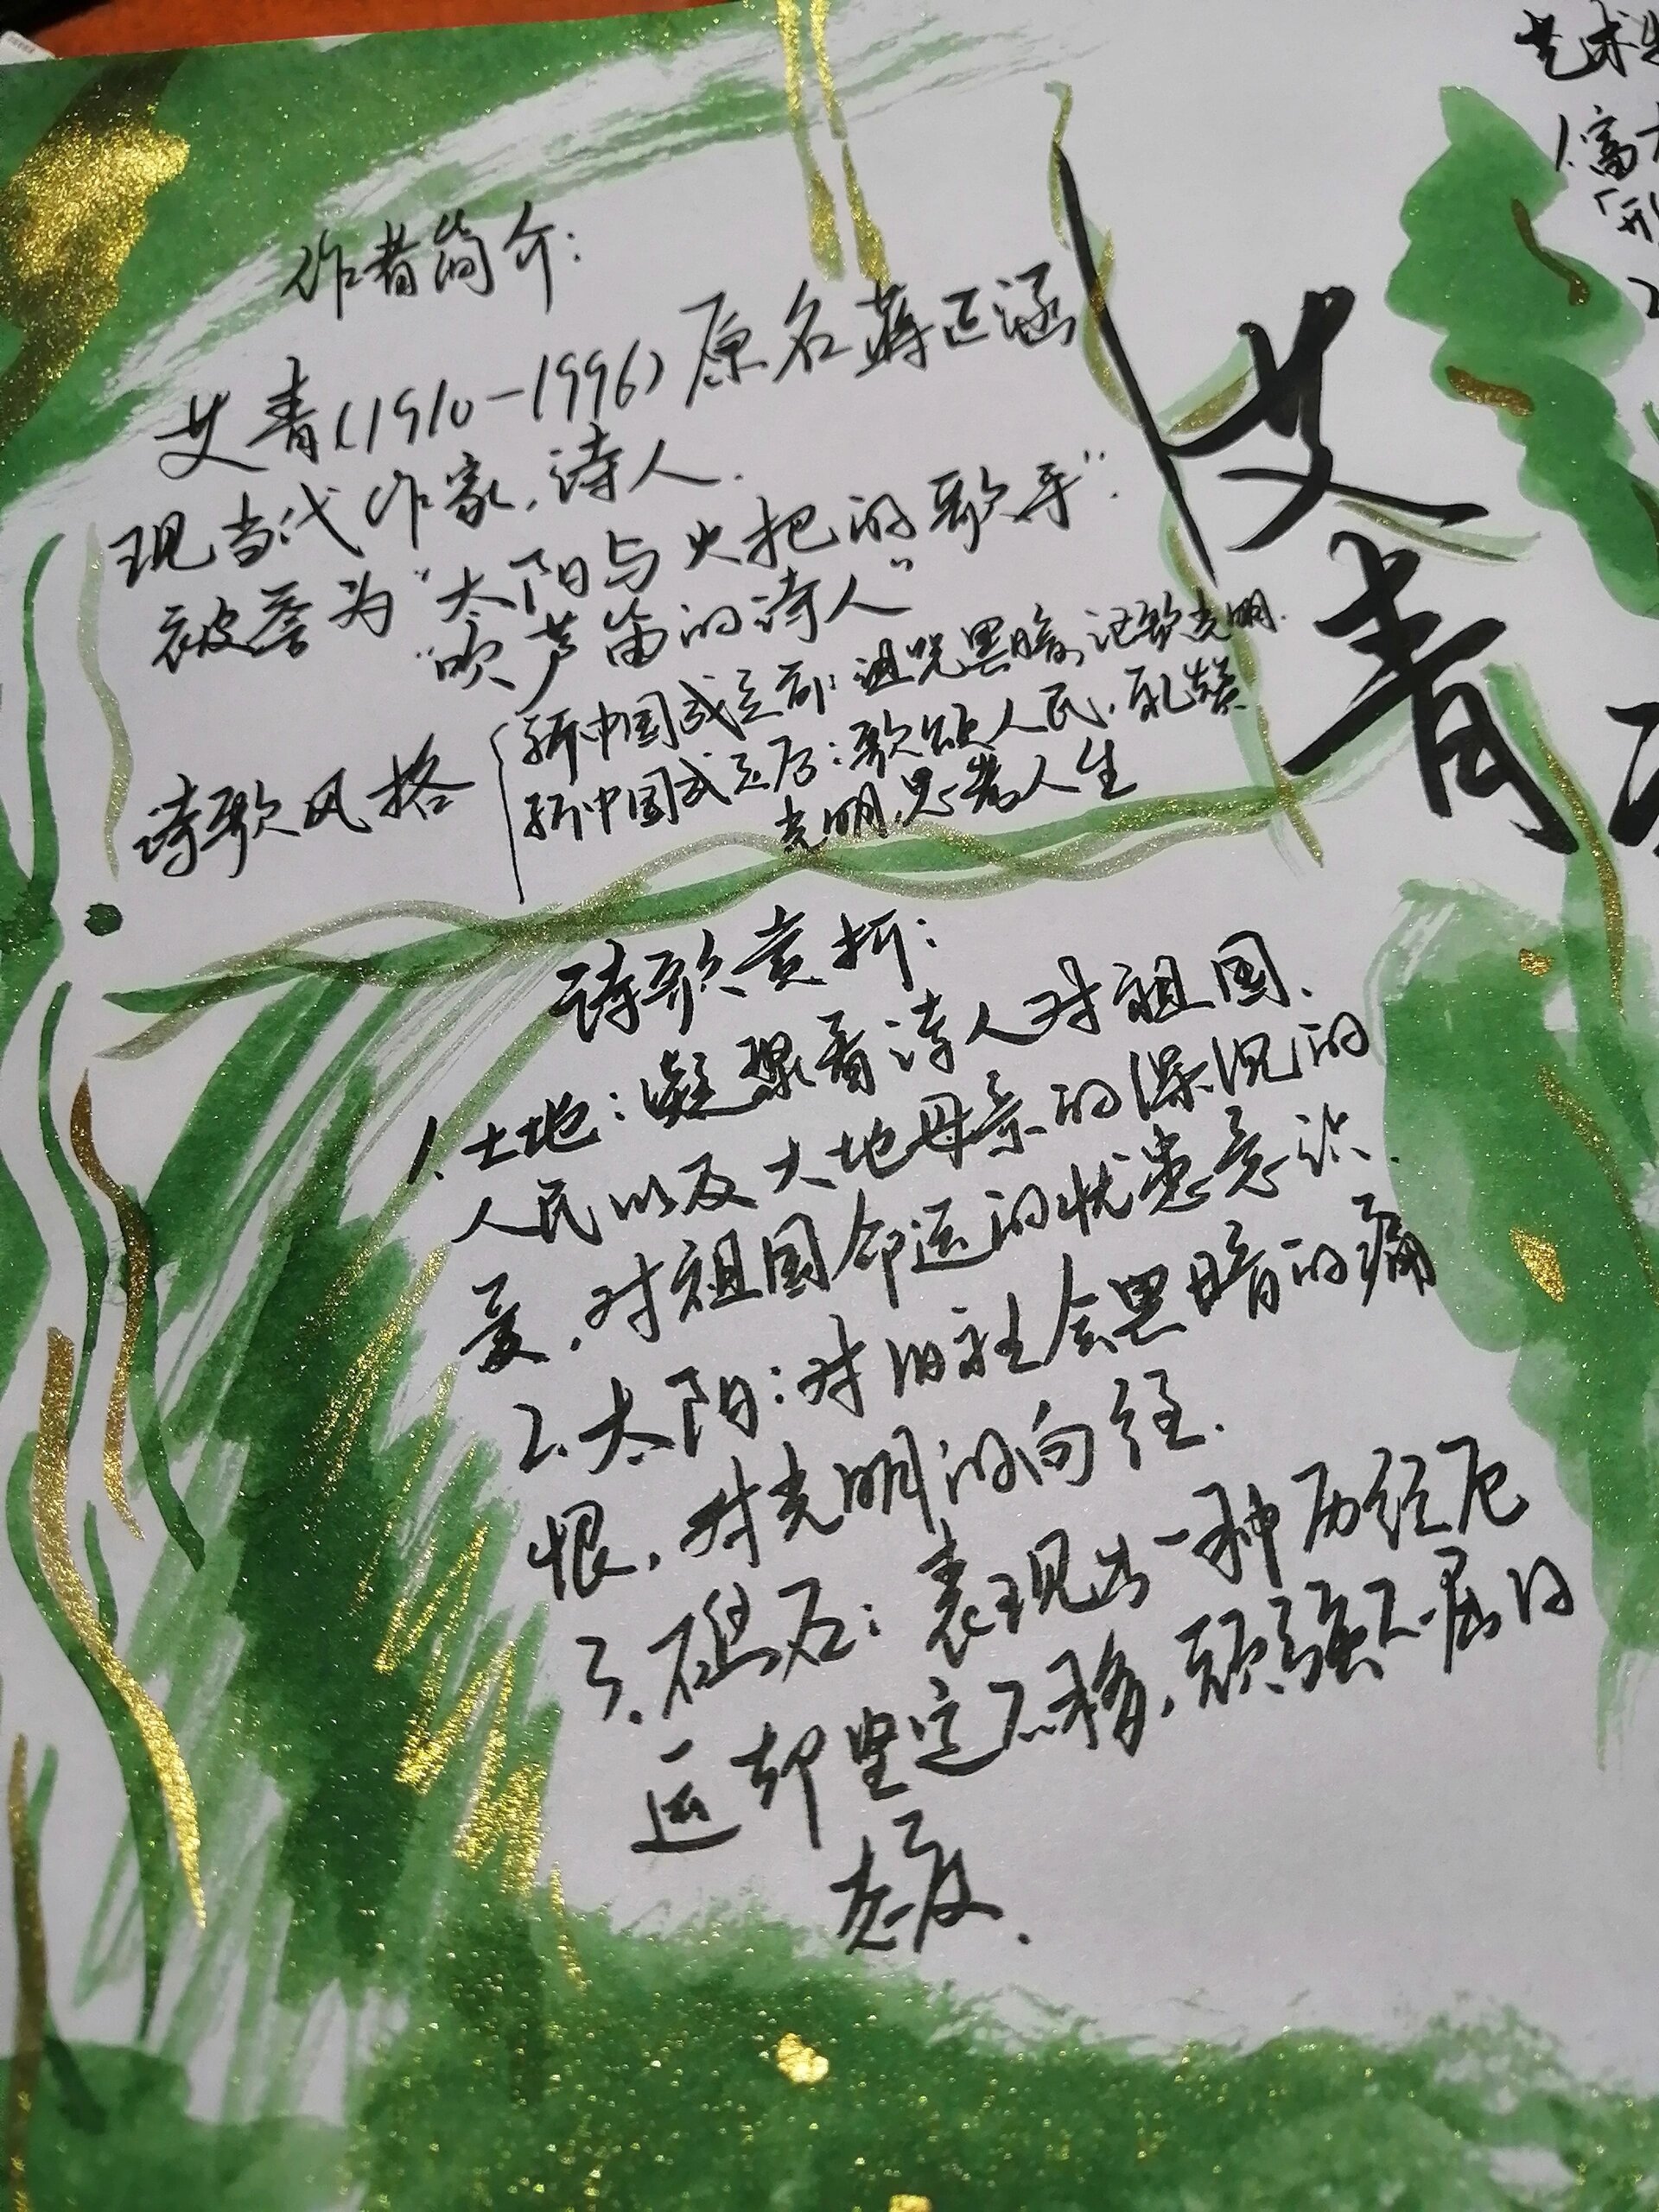 作者简介：
艾青（1910-1996）原名蒋正涵
现当代作家，诗人.
被誉为“太阳与火把的歌手”.
“吹芦笛的诗人”
诗歌风格
新中国成立前：诅咒黑暗，讴歌光明.
新中国成立后：歌颂人民，礼赞
光明，思考人生
诗歌赏析：
1.土地：凝聚着诗人对祖国.
人民以及大地母亲的深沉的
爱，对祖国命运的忧患意识.
2.太阳：对旧社会黑暗的痛
恨，对光明的向往.
3.礁石：表现出一种历经厄
运却坚定不移，顽强不屈的
态度.
艾青
艺术
1.富